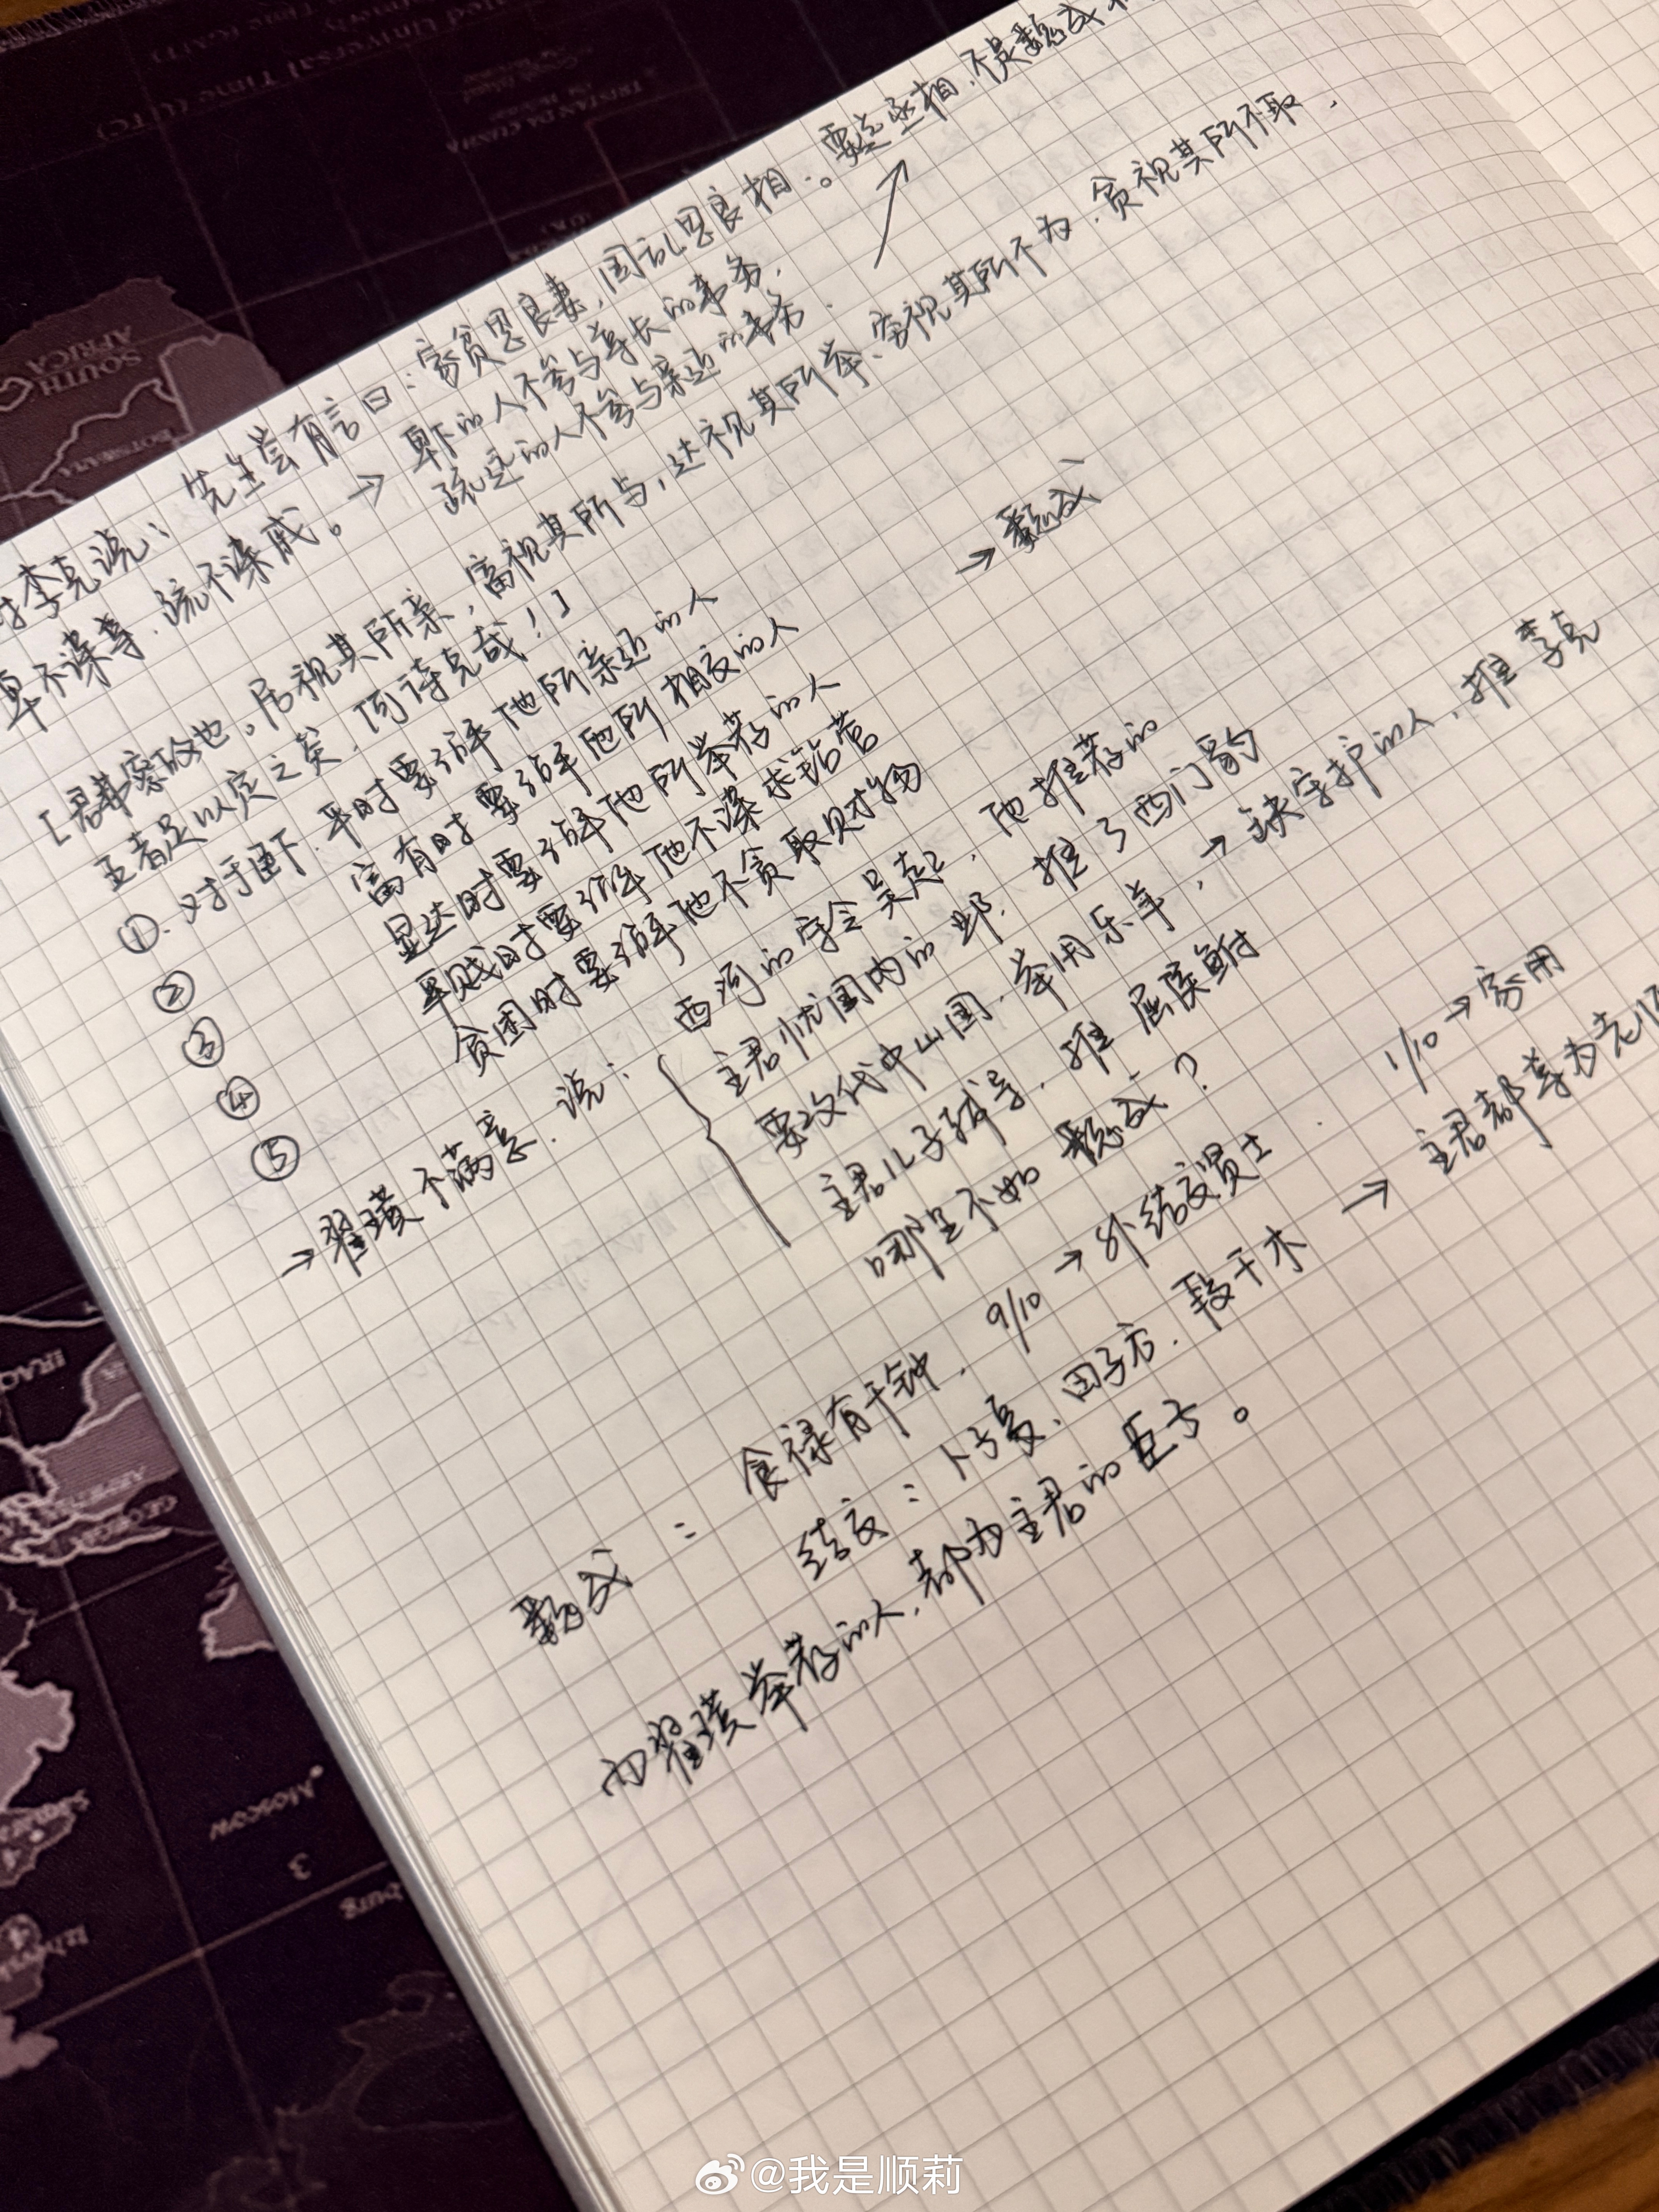 对李克说：先生尝有言曰：家贫思良妻，国乱思良相。要定丞相，不是魏成
卑不谋尊，疏不谋戚。→卑下的人不参与尊长的事务，
疏远的人不参与亲近的事务.
[君弗察故也。居视其所亲，富视其所与，达视其所举、穷视其所不为，贫视其所不取，
五者足以定之矣，何待克哉！]
→魏成
①.对于臣下，平时要了解他所亲近的人
② 富有时要了解他所相交的人
③ 显达时要了解他所举荐的人
④ 卑贱时要了解他不谋求钻营
⑤ 贫困时要了解他不贪取财物
→翟璜不满意，说：西河的守令吴起，他推荐的
主君忧国内的邺，推了西门豹
要攻伐中山国，举用乐羊，→缺守护的人，推李克
主君儿子缺导，推屈侯鲋
哪里不如魏成？
魏成：食禄有千钟，9/10→外结交贤士. 1/10→家用
结交：卜子夏、田子方、段干木→主君都尊为老师
而翟璜举荐的人，都为主君的臣子。
SOUTH AFRICA
BOTSWANA
TRISTAN DA CUNHA
Universal Time (UTC)
Moscow
3
4
@我是顺莉